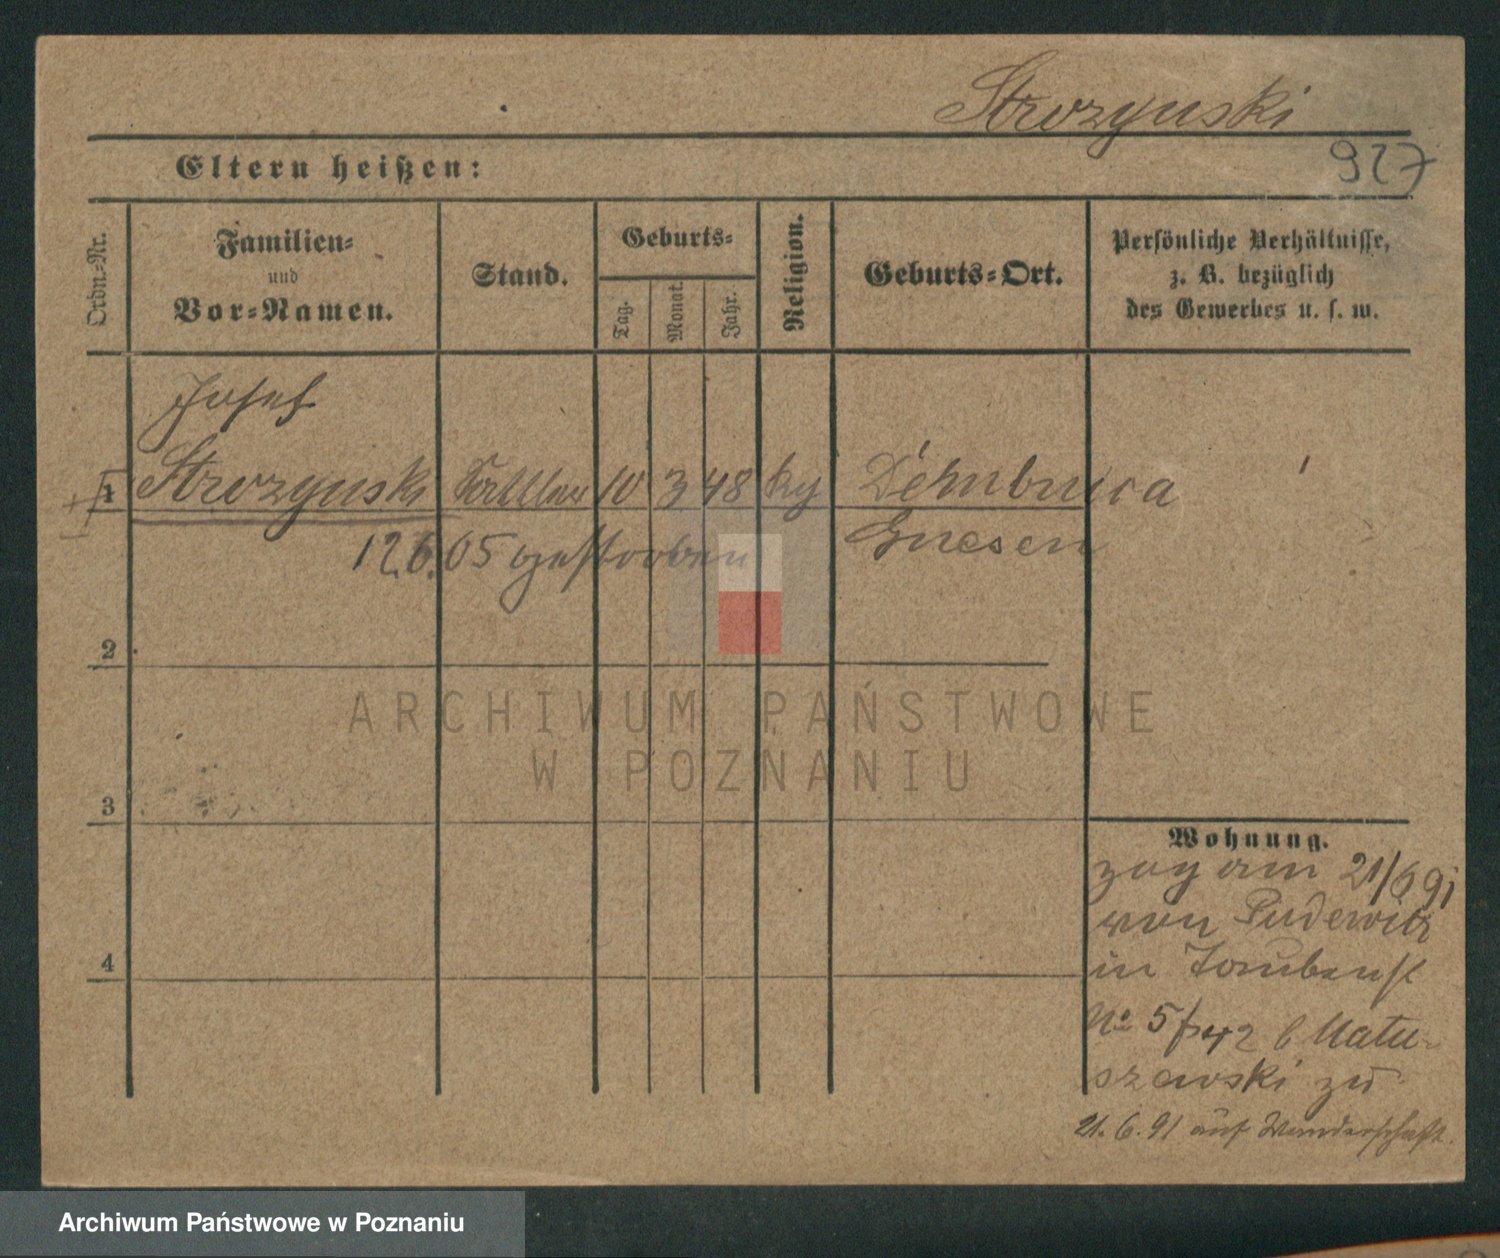 Strozynski
927
Eltern heißen:
Ordn.-Nr.
Familien-
und
Vor-Namen.
Stand.
Geburts-
Tag.
Monat.
Jahr.
Religion.
Geburts-Ort.
Persönliche Verhältnisse,
z. B. bezüglich
des Gewerbes u. s. w.
Josef
1 Strozynski Sattler 10 3 48
Gnesen
12.6.05 gestorben
2
3
4
Wohnung.
zog am 21/6 91
von Pudewitz
in Taubenst
No 5 b Matu-
szewski zu
21.6.91 auf Wanderschaft.
ARCHIWUM PAŃSTWOWE
W POZNANIU
Archiwum Państwowe w Poznaniu